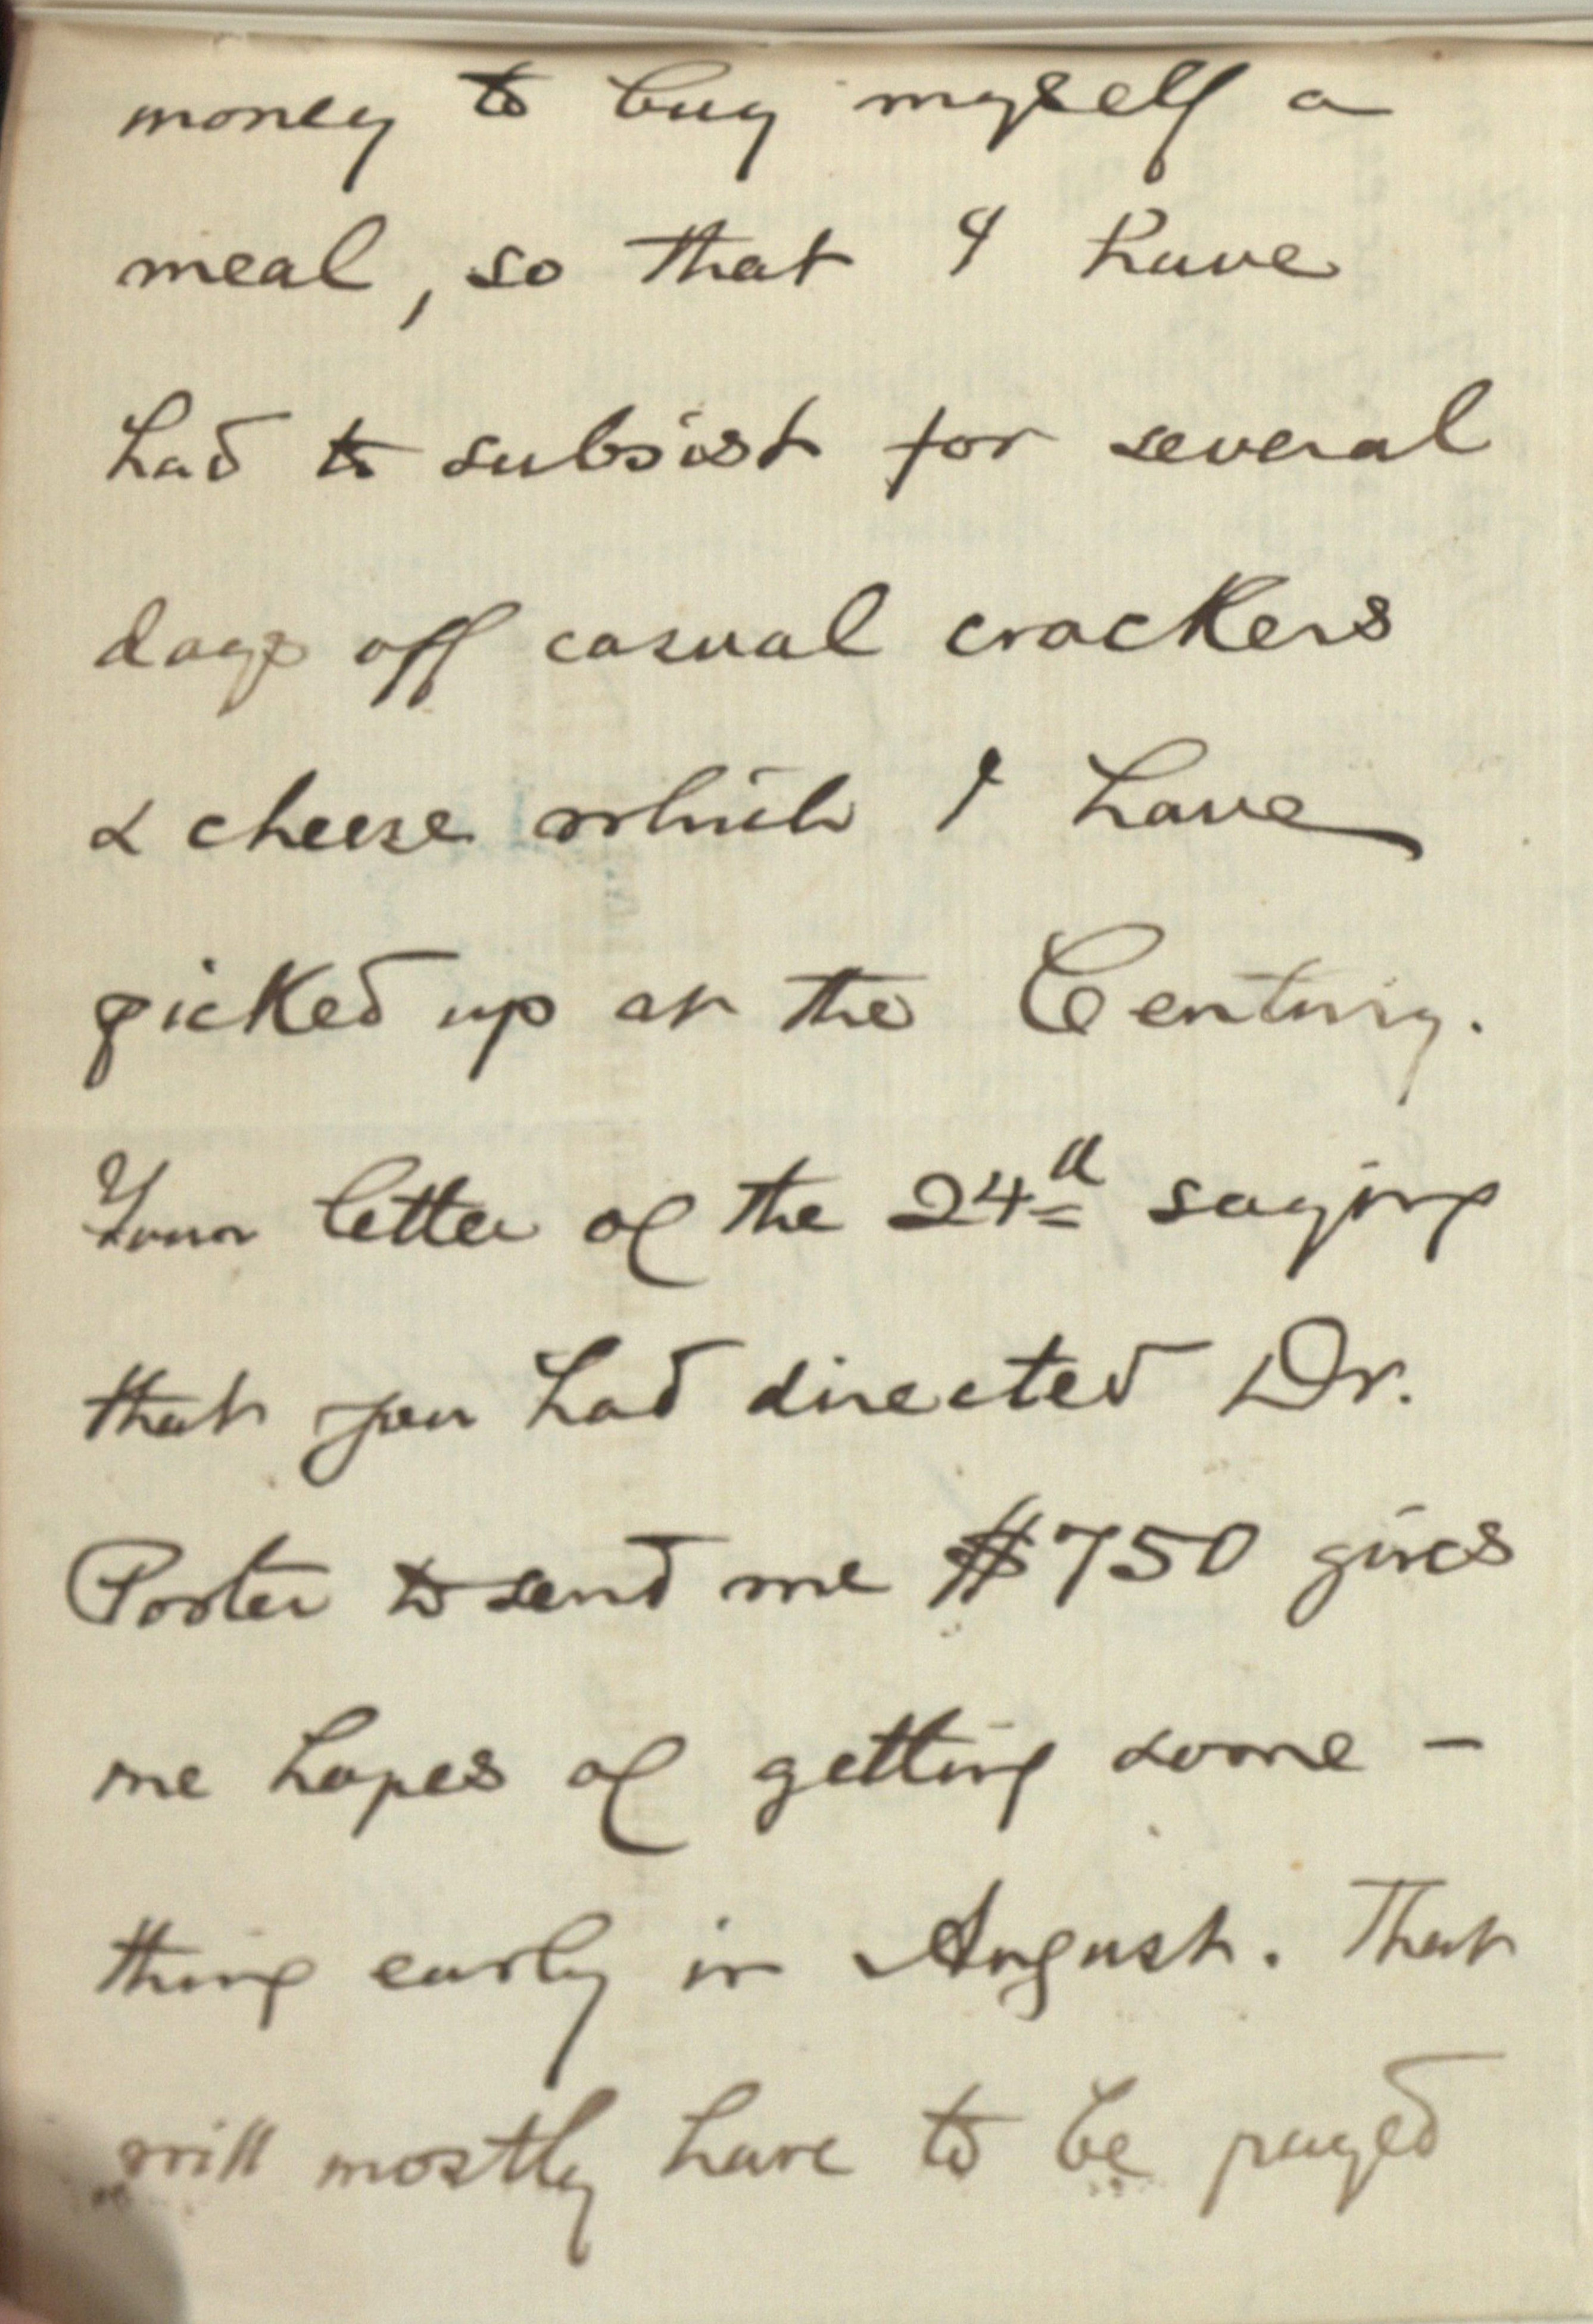 money to buy myself a
meal, so that I have
had to subsist for several
days off casual crackers
& cheese which I have
picked up at the Century.
Your letter of the 24th saying
that you had directed Dr.
Porter to send me $750 gives
me hopes of getting some -
thing early in August. That
will mostly have to be payed